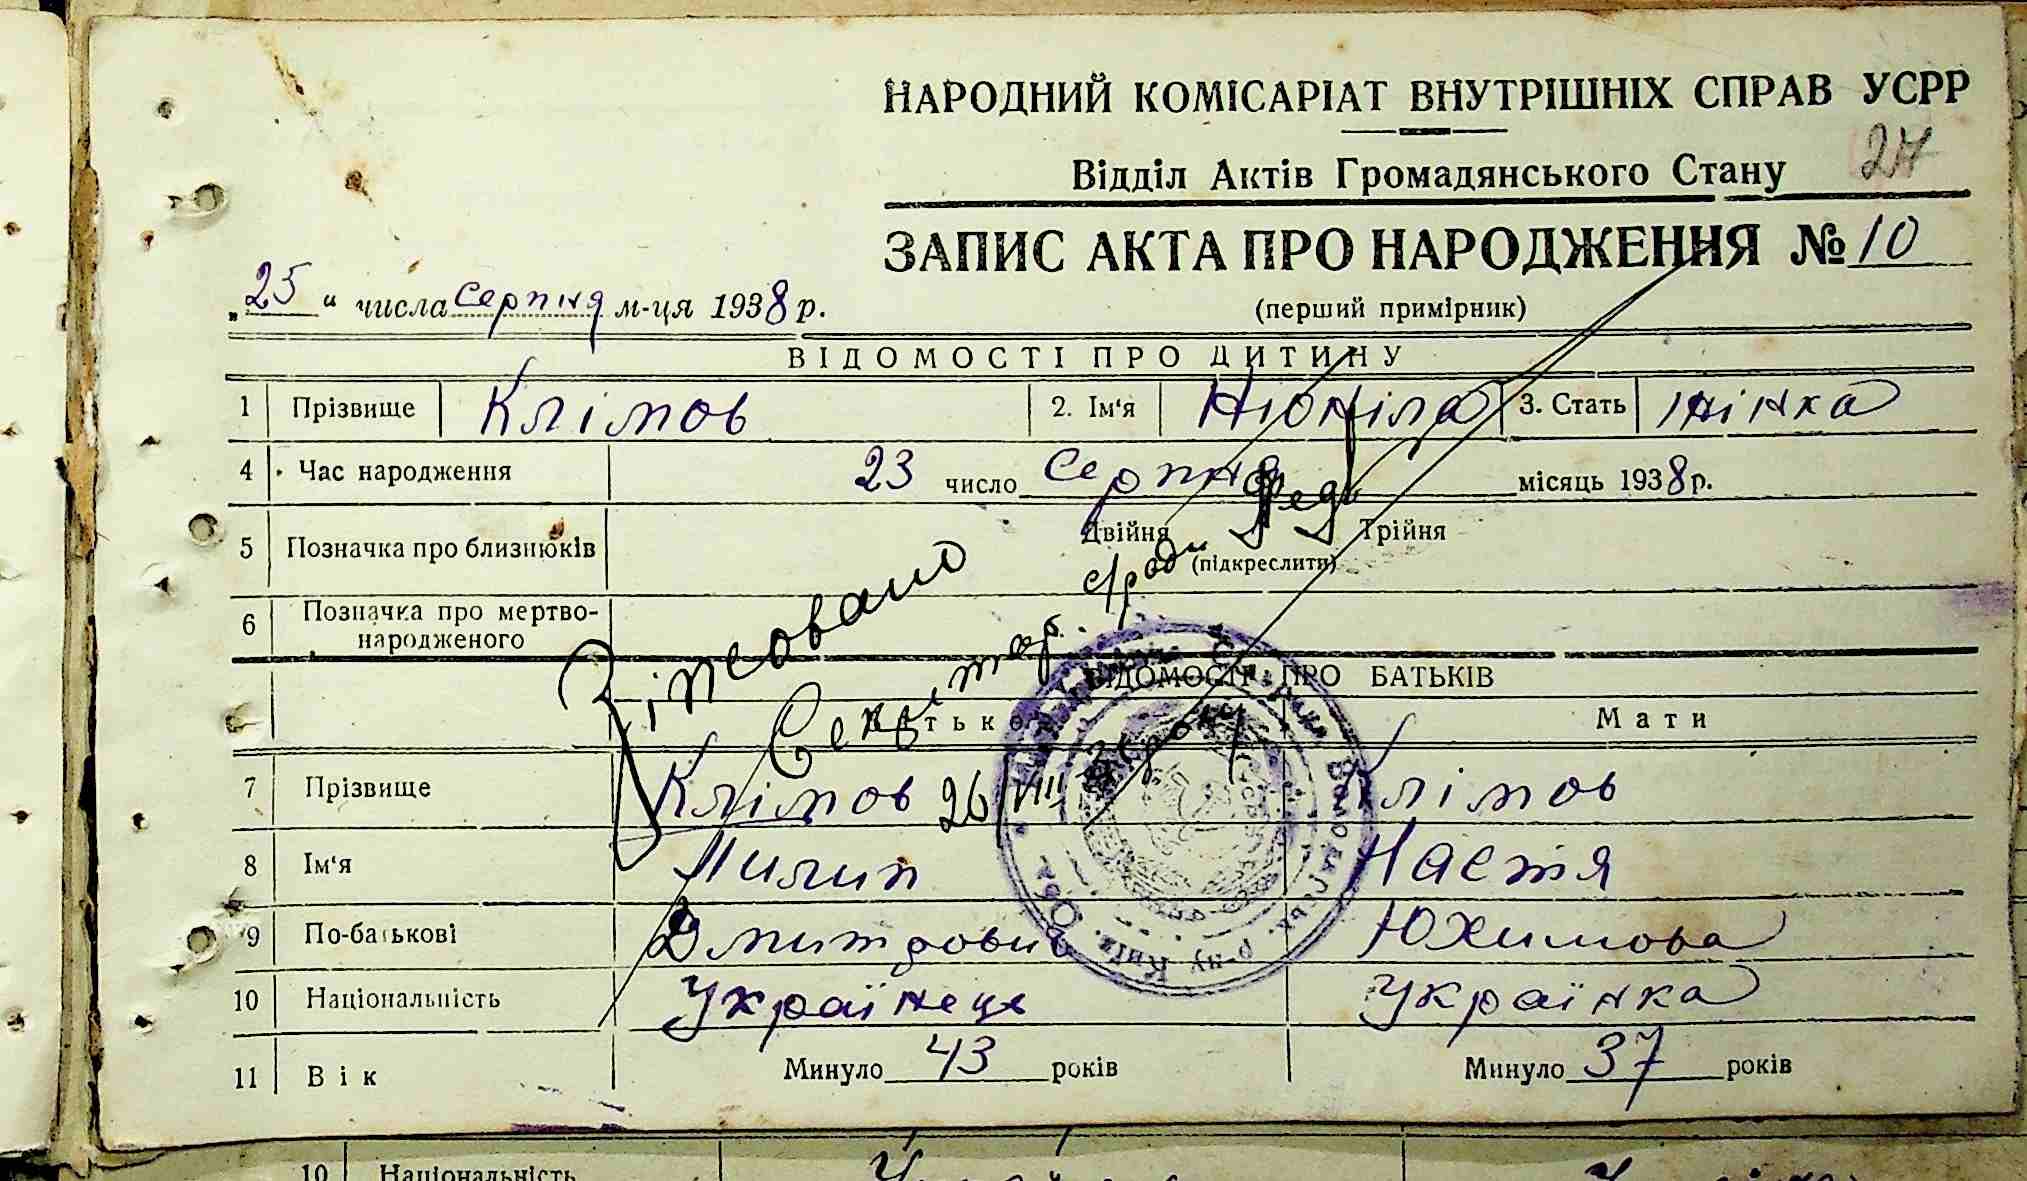 НАРОДНИЙ КОМІСАРІАТ ВНУТРІШНІХ СПРАВ УСРР
27
Відділ Актів Громадянського Стану
ЗАПИС АКТА ПРО НАРОДЖЕННЯ № 10
„25“ числа серпня м-ця 1938 р.
(перший примірник)
ВІДОМОСТІ ПРО ДИТИНУ
1 Прізвище Клімов 2. Ім‘я Нюніла 3. Стать жінка
4 Час народження 23 число серпня місяць 1938 р.
5 Позначка про близнюків Двійня Трійня
(підкреслити)
6 Позначка про мертво-
народженого
ВІДОМОСТІ ПРО БАТЬКІВ
Батько Мати
7 Прізвище Клімов Клімов
8 Ім‘я Пилип Настя
9 По-батькові Дмитрович Юхимова
10 Національність Українець Українка
11 Вік Минуло 43 років Минуло 37 років
Зіпсовано
Секретар с/ради
26/VIII
10 Національність